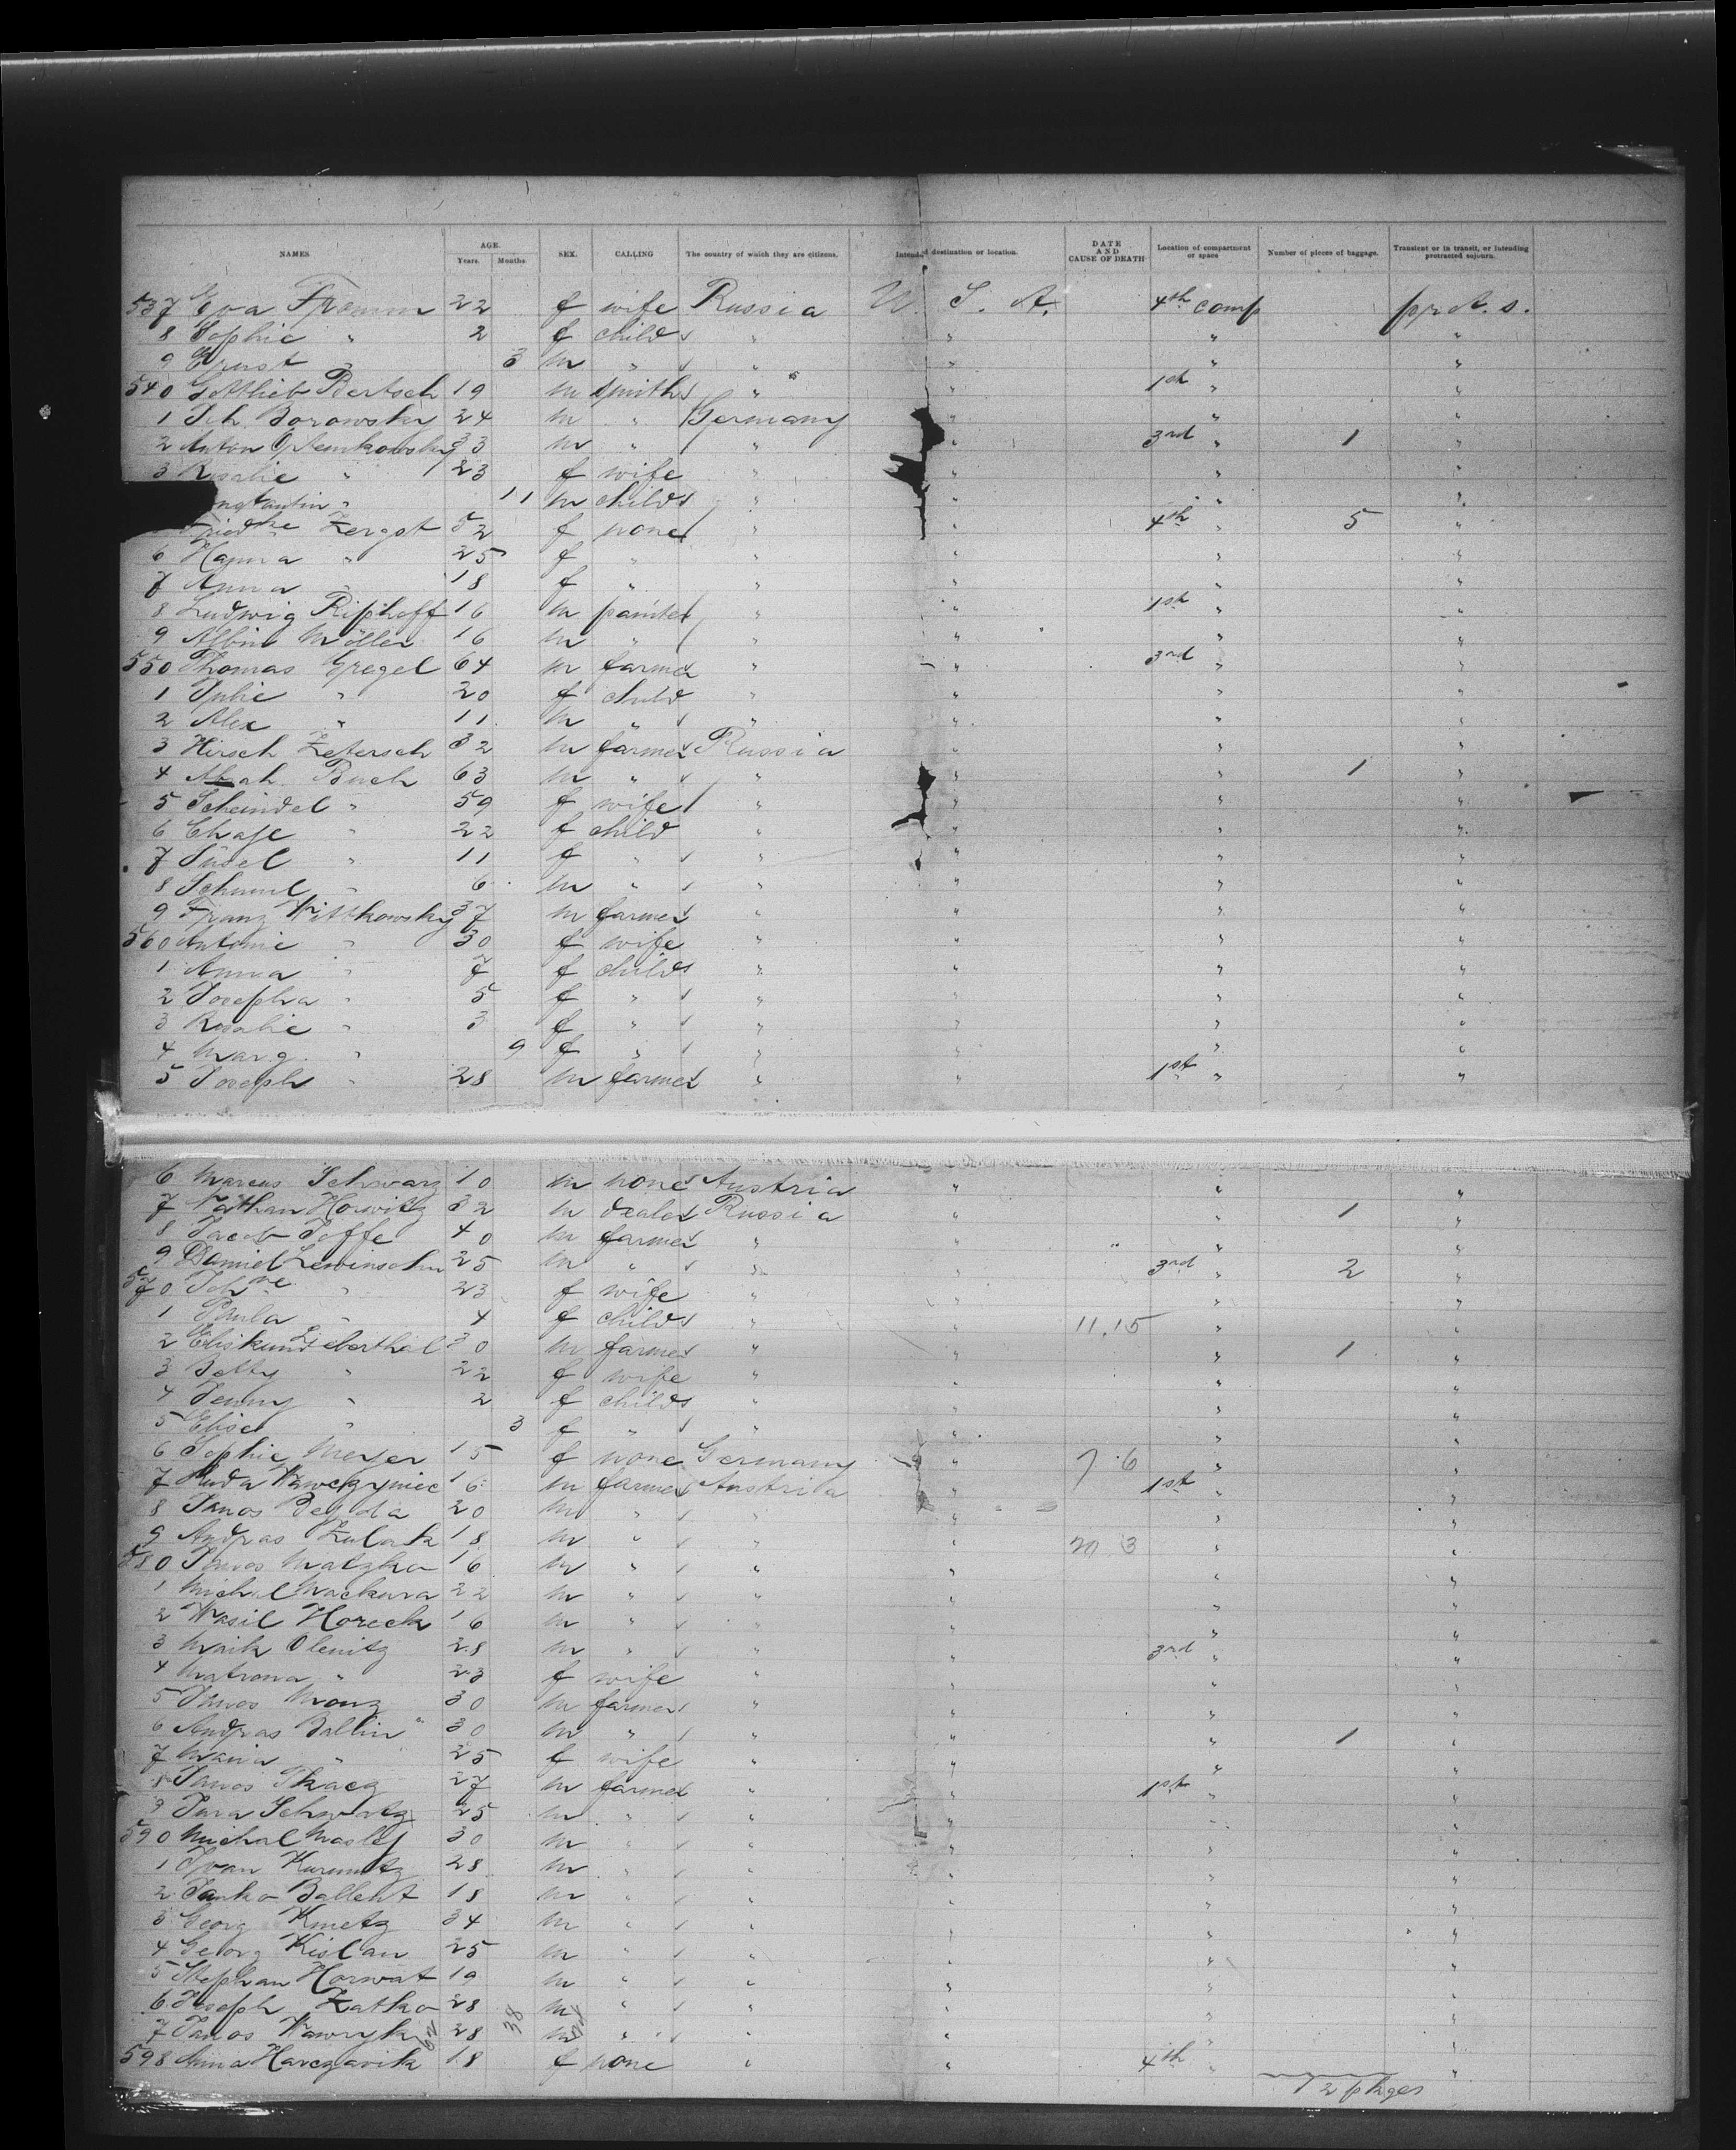 NAMES AGE. Years. Months. SEX. CALLING The country of which they are citizens. Intended destination or location. DATE AND CAUSE OF DEATH Location of compartment or space Number of pieces of baggage. Transient or in transit, or intending protracted sojourn.
537 Eva Fromm 22 f wife Russia U. S. A. 4th comp pr. A. s.
8 Sophie " 2 f child " " " "
9 Ernst " 3 m " " " " "
540 Gottlieb Bertsch 19 m smith " " 1st " "
1 Joh. Borowsky 24 m " Germany " " "
2 Anton 33 m " " " 3rd " 1 "
3 Rosalie " 23 f wife " " " "
nstantin " 11 m child " " " "
Friedke Zergot 52 f none " " 4th " 5 "
6 Hanna " 25 f " " " " "
7 Anna " 18 f " " " " "
8 Ludwig Riphoff 16 m painter " " 1st " "
9 Albin Möller 16 m " " " " "
550 Thomas Gregel 64 m farmer " " 3rd " "
1 Julie " 20 f child " " " "
2 Alex " 11 m " " " " "
3 Hirsch 32 m farmer Russia " " "
4 Abrah. Buch 63 m " " " " 1 "
5 Scheindel " 59 f wife " " " "
6 Chaje " 22 f child " " " "
7 Süsel " 11 f " " " " "
8 Schmul " 6 m " " " " "
9 Franz Wittkowsky 37 m farmer " " " "
560 Antonie " 30 f wife " " " "
1 Anna " 7 f child " " " "
2 Josepha " 5 f " " " " "
3 Rosalie " 3 f " " " " "
4 Marg. " 9 f " " " " "
5 Joseph " 28 m farmer " " 1st " "
6 Marcus Schwarz 10 m none Austria " " "
7 Nathan Horwitz 32 m dealer Russia " " 1 "
8 Jacob Joffe 40 m farmer " " " "
9 Daniel Lewinsohn 25 m " " " 3rd " 2 "
570 Johne " 23 f wife " " " "
1 Paula " 4 f child " " 11.15 " "
2 Lieberthal 30 m farmer " " " 1 "
3 Betty " 22 f wife " " " "
4 Jenny " 2 f child " " " "
5 Elise " 3 f " " " " "
6 Sophie Meyer 15 f none Germany " 7.6 " "
7 Wawczyniec 16 m farmer Austria " 1st " "
8 Janos Benda 20 m " " " " "
9 Andras Zulak 18 m " " " 20 3 " "
580 Janos Matzko 16 m " " " " "
1 Michal Mackura 22 m " " " " "
2 Wasil Horeck 16 m " " " " "
3 Maik Olenitz 28 m " " " 3rd " "
4 Matrona " 23 f wife " " " "
5 Janos 30 m farmer " " " "
6 Andras Ballin 30 m " " " " 1 "
7 Maria " 25 f wife " " " "
8 Janos Tkacz 27 m farmer " " 1st " "
9 Jura Schwatz 25 m " " " " "
590 Michal Maslej 30 m " " " " "
1 Ivan 28 m " " " " "
2 Janko Ballent 18 m " " " " "
3 Georg Kmetz 34 m " " " " "
4 Georg Kislan 25 m " " " " "
5 Stephan Horwat 19 m " " " " "
6 Joseph Zatko 28 m " " " " "
7 Janos Wawryk 28 m " " " " "
62 38 24
598 Anna Harczarik 18 f none " " 4th " "
12 pkges